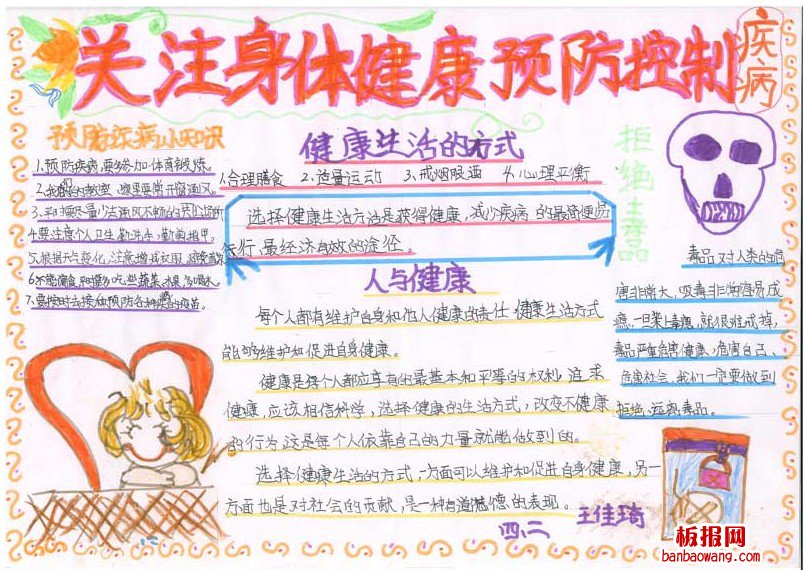 关注身体健康预防控制
疾病
预防疾病小知识
1.预防疾病,要多参加体育锻炼。
通风。
4.要注意个人卫生,勤洗手,勤剪指甲。
5.根据天气变化,注意增减衣服,避免
7.要按时去接种预防各种疾病的疫苗。
健康生活的方式
1.合理膳食 2.适量运动 3.戒烟限酒 4.心理平衡
选择健康生活方法是获得健康,减少疾病的最简便易
行,最经济有效的途径。
人与健康
每个人都有维护自身和他人健康的责任,健康生活方式
能够维护和促进自身健康。
健康是每个人都应享有的最基本和平等的权利,追求
健康,应该相信科学,选择健康的生活方式,改变不健康
的行为,这是每个人依靠自己的力量就能做到的。
选择健康生活的方式,一方面可以维护和促进自身健康,另一
方面也是对社会的贡献,是一种有道德的表现。
四、二
王佳琦
拒绝毒品
毒品对人类的危
害非常大,吸毒非常容易成
瘾,一旦染上毒瘾,就很难戒掉,
毒品严重危害健康,危害自己、
危害社会,我们一定要做到
拒绝、远离毒品。
板报网
banbaowang.com